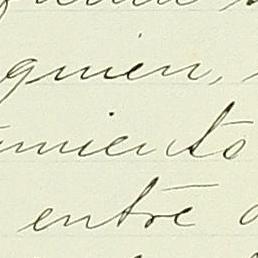 quien,
miento
entre